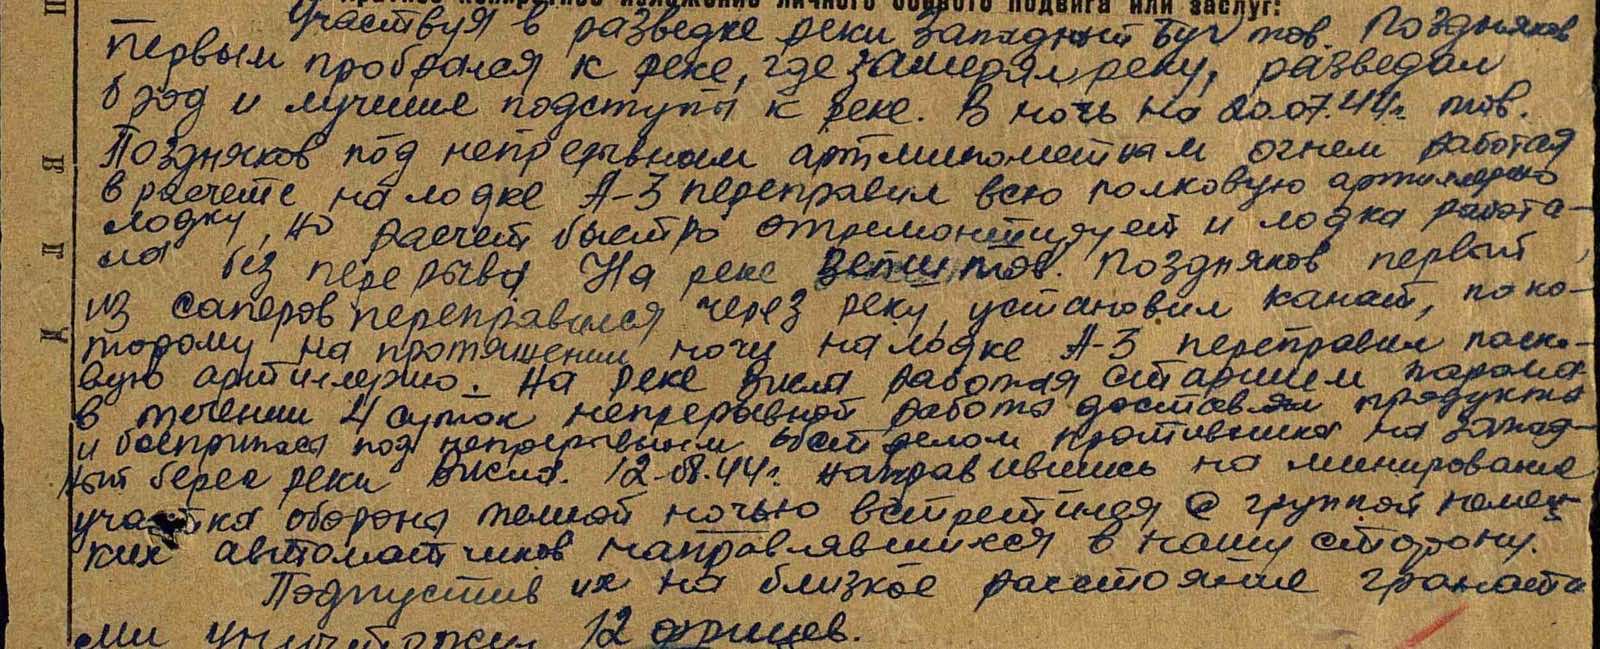 Краткое конкретное изложение личного боевого подвига или заслуг:
Участвуя в разведке реки Западный Буг тов. Поздняков
первым пробрался к реке, где замерял реку, разведал
брод и лучшие подступы к реке. В ночь на 20.07.44г. тов.
Поздняков под непрерывным артминометным огнем работая
в расчете на лодке А-3 переправил всю полковую артиллерию
лодку, но расчет быстро отремонтирует и лодка работа-
ла без перерыва. На реке тов. Поздняков первый
из саперов переправился через реку, установил канат, по ко-
торому на протяжении ночи на лодке А-3 переправил полко-
вую артиллерию. На реке Висла работая старшем парома
в течении 4 суток непрерывной работы доставлял продукты
и боеприпасы под непрерывным обстрелом противника на запад-
ный берег реки Висла. 12.08.44г. направившись на минирование
участка обороны темной ночью встретился с группой немец-
ких автоматчиков направлявшихся в нашу сторону.
Подпустив их на близкое расстояние граната-
ми уничтожил 12 фрицев.